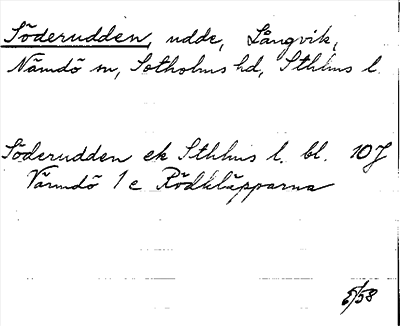 Söderudden, udde, Långvik,
Nämdö sn, Sotholms hd, Sthlms l.
Söderudden ek Sthlms l. bl. 107
Värmdö 1 e Rödkläpparna
5/58